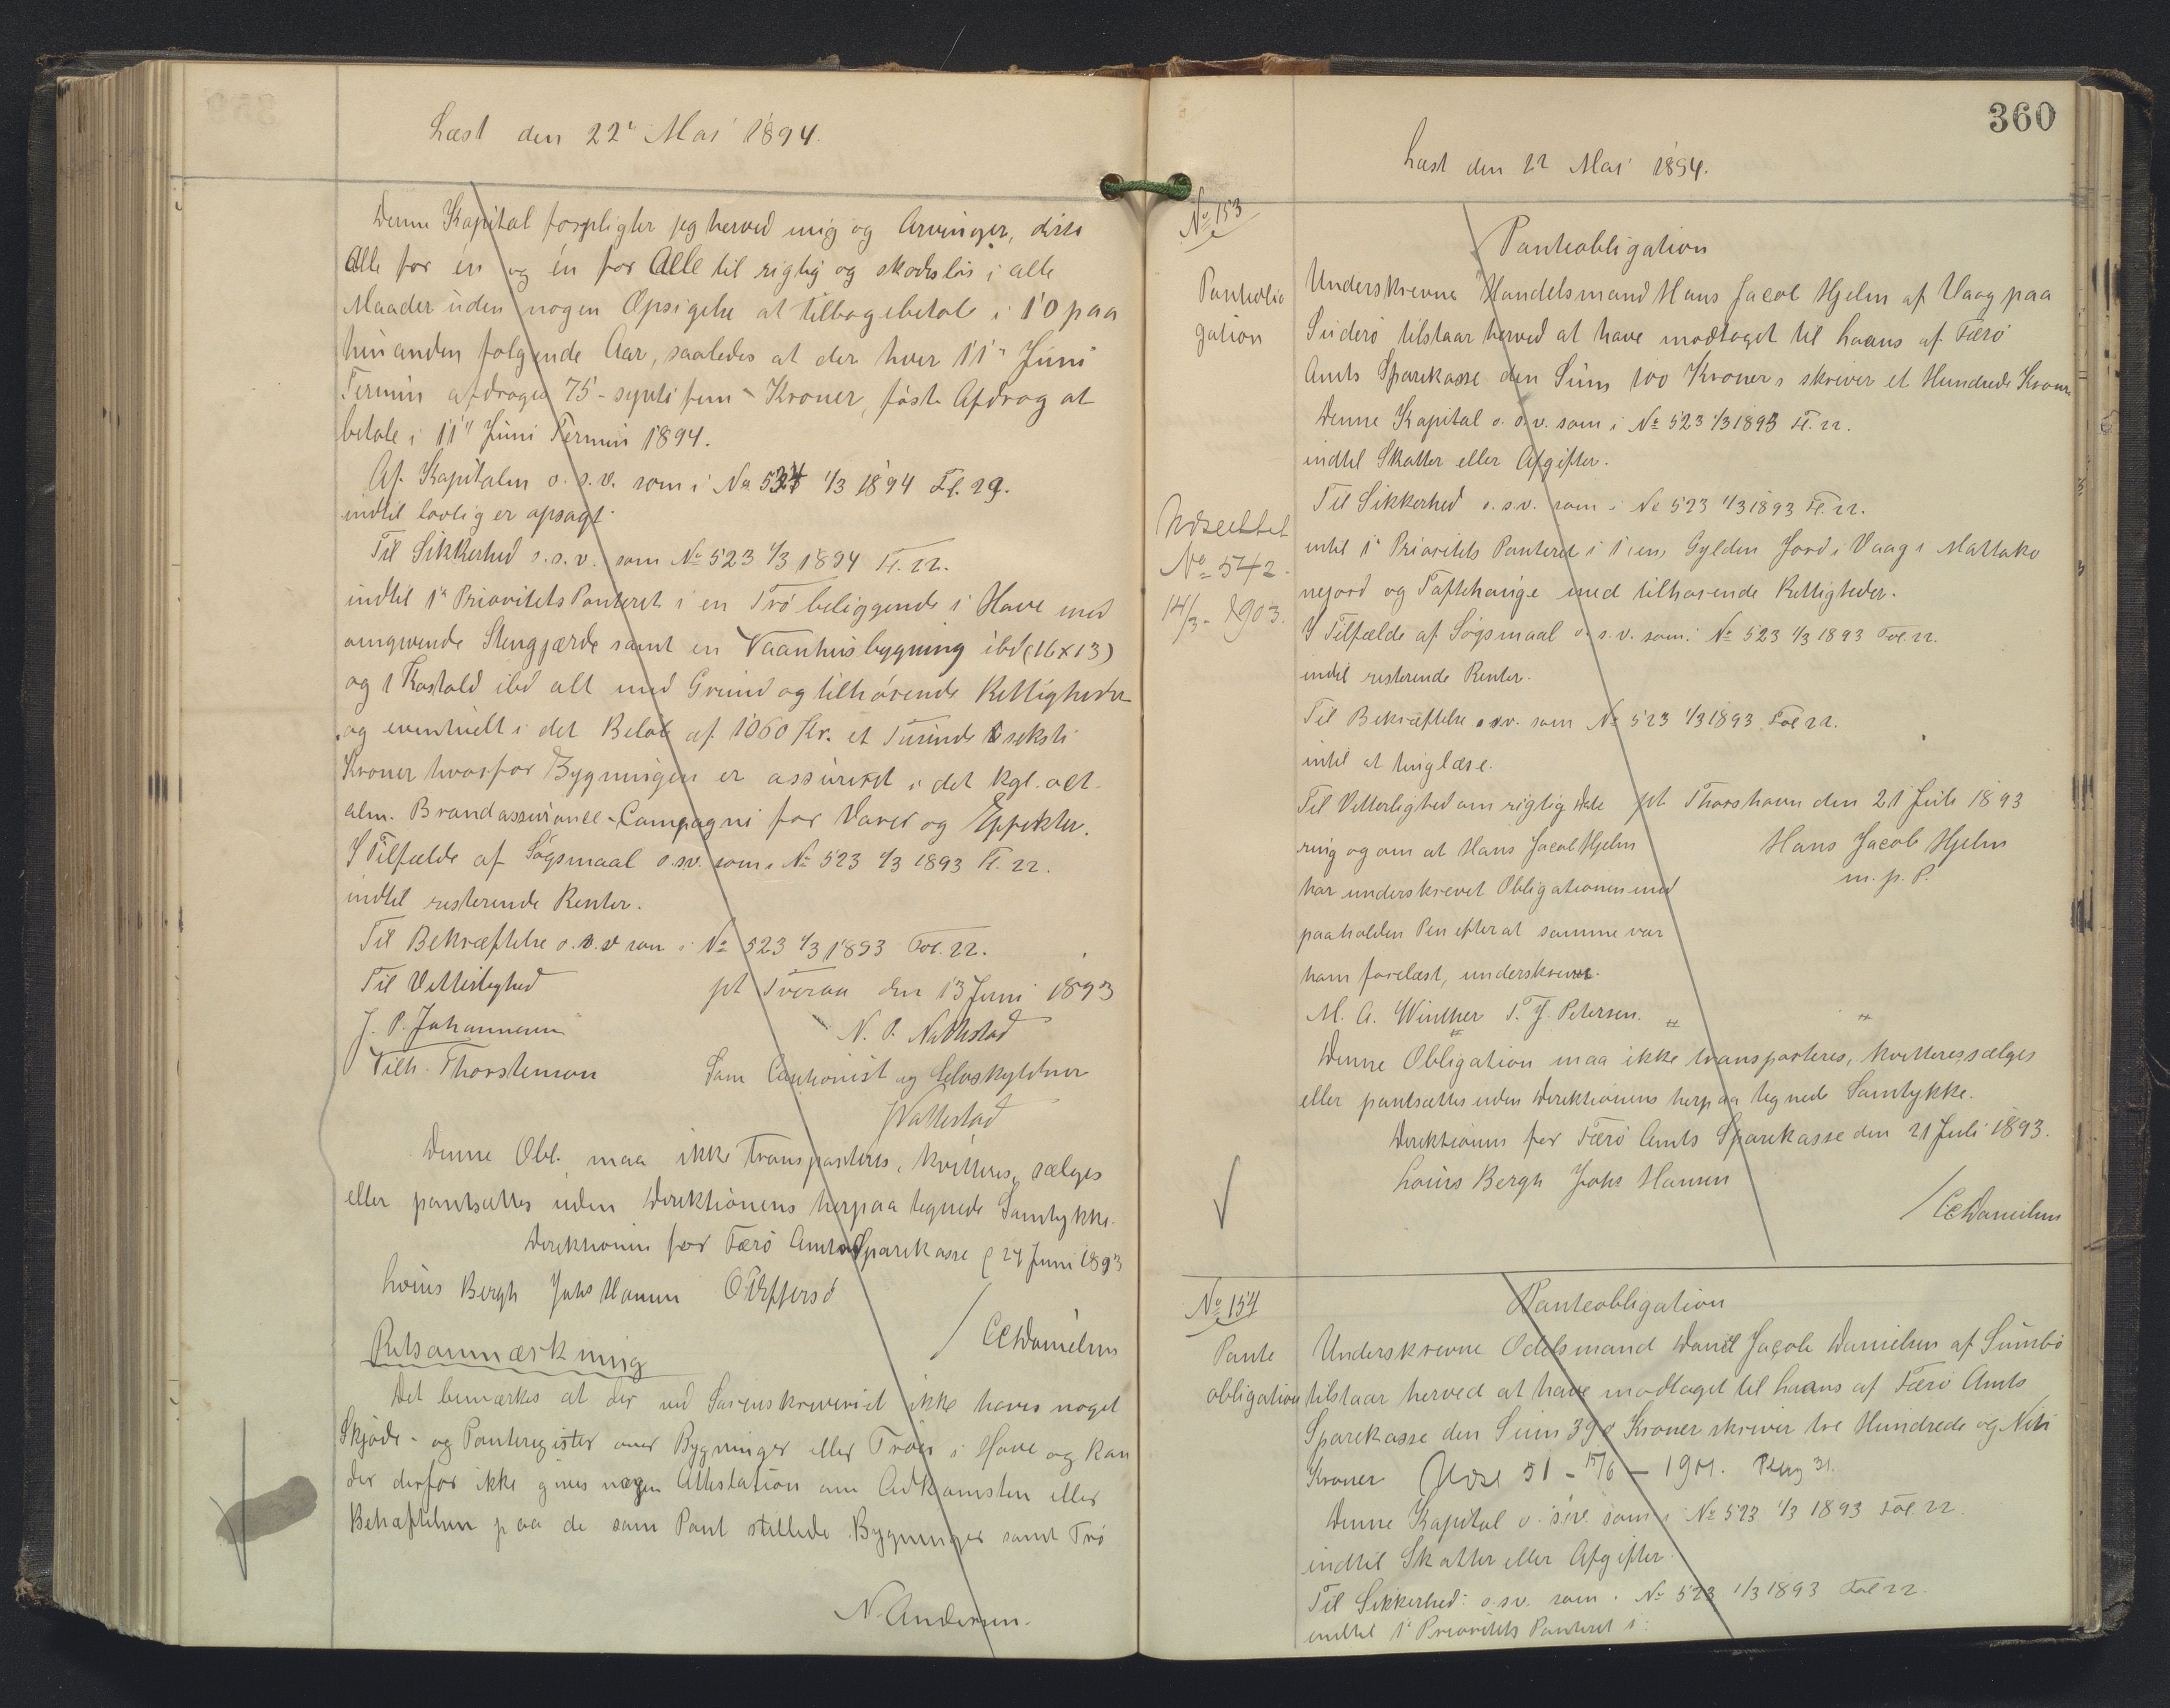 Læst den 22' Mai 1894.
Denne Kapital forpligter jeg herved mig og Arvinger, disse
Alle for en og én for Alle til rigtig og skadesløs i alle
Maader uden nogen Opsigelse at tilbagebetale i 10 paa
hinanden følgende Aar, saaledes at der hver 11" Juni
Termin afdrages 75 - sytti fem - Kroner, første Afdrag at
betale i 11" Juni Termin 1894.
Af Kapitalen o. s. v. som i No 524 1/3 1894 Fl. 29.
indtil lovlig er opsagt.
Til Sikkerhed o. s. v. som No 523 1/3 1894 Fl. 22.
indtil 1" Prioritets Panteret i en Trø beliggende i Have med
omgivende Stengjærde samt en Vaanhusbygning ibd (16x13)
og 1 Kostald ibd alt med Grund og tilhørende Rettigheder
og eventuelt i det Beløb af 1060 Kr. et Tusinde seksti
Kroner hvorfor Bygningen er assureret i det kgl. oct.
alm. Brandassurance-Compagni for Varer og Effekter.
I Tilfælde af Søgsmaal o.s.v. som i No 523 1/3 1893 Fl. 22.
indtil resterende Renter.
Til Bekræftelse o. s. v som i No 523 1/3 1893 Fol. 22.
Til Vitterlighed pt Tveraa den 13 Juni 1893
J. P. Johannesen N. P. Nattestad
Vilh. Thorsteinson Som Cautionist og Selvskyldner
Nattestad
Denne Obl. maa ikke transporteres, kvitteres, sælges
eller pantsættes uden Direktionens herpaa tegnede Samtykke.
Direktionen for Færø Amts Sparekasse d 24 Juni 1893
Louis Bergh Johs Hansen O Effersø
/ CCDanielsen
Retsanmærkning
Det bemærkes at der ved Sorenskriveriet ikke haves noget
Skjøde- og Panteregister over Bygninger eller Trøer i Have og kan
der derfor ikke gives nogen Attestation om Adkomsten eller
Behæftelsen paa de som Pant stillede Bygninger samt Trø
N. Andersen.
360
Læst den 22 Mai 1894.
No 153
Panteobli
gation
Panteobligation
Underskrevne Handelsmand Hans Jacob Hjelm af Vaag paa
Suderø tilstaar herved at have modtaget til Laans af Færø
Amts Sparekasse den Sum 100 Kroner, skriver et Hundrede Kroner
Denne Kapital o. s. v. som i No 523 1/3 1893 Fl. 22.
indtil Skatter eller Afgifter.
Til Sikkerhed o. s. v. som i No 523 1/3 1893 Fl. 22.
Udslettet
No 542.
14/3 - 1903.
intil 1" Prioritets Panteret i 1 en, Gylden Jord i Vaag i Mattako
nejord og Toftehauge med tilhørende Rettigheder.
I Tilfælde af Søgsmaal o. s. v. som i No 523 1/3 1893 Fol. 22.
indtil resterende Renter.
Til Bekræftelse o s v. som No 523 1/3 1893 Fol 22.
intil at tinglæse.
Til Vitterlighed om rigtig Date pt Thorshavn den 21 Juli 1893
ring og om at Hans Jacob Hjelm Hans Jacob Hjelm
har underskrevet Obligationen med m. p. P.
paaholden Pen efterat samme var
ham forelæst, underskrives.
M. A. Winther T. J. Petersen.
Denne Obligation maa ikke transporteres, kvitteres sælges
eller pantsættes uden Direktionens herpaa tegnede Samtykke.
Direktionen for Færø Amts Sparekasse den 21 Juli 1893.
Louis Bergh Johs Hansen
/ CCDanielsen
No 154
Pante
obligation
Panteobligation
Underskrevne Odelsmand Daniel Jacob Danielsen af Sumbø
tilstaar herved at have modtaget til Laans af Færø Amts
Sparekasse den Sum 390 Kroner skriver tre Hundrede og Niti
Kroner Udsl 51 - 15/6 - 1901.
Denne Kapital o. s.v. som i No 523 1/3 1893 Fol 22.
indtil Skatter eller Afgifter.
Til Sikkerhed o. s.v. som i No 523 1/3 1893 Fol 22.
indtil 1" Prioritets Panteret i